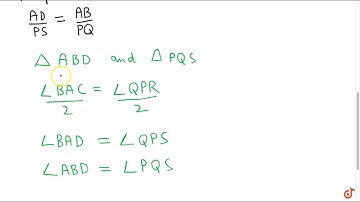 AD/PS = AB/PQ
△ ABD and △ PQS
∠BAC/2 = ∠QPR/2
∠BAD = ∠QPS
∠ABD = ∠PQS